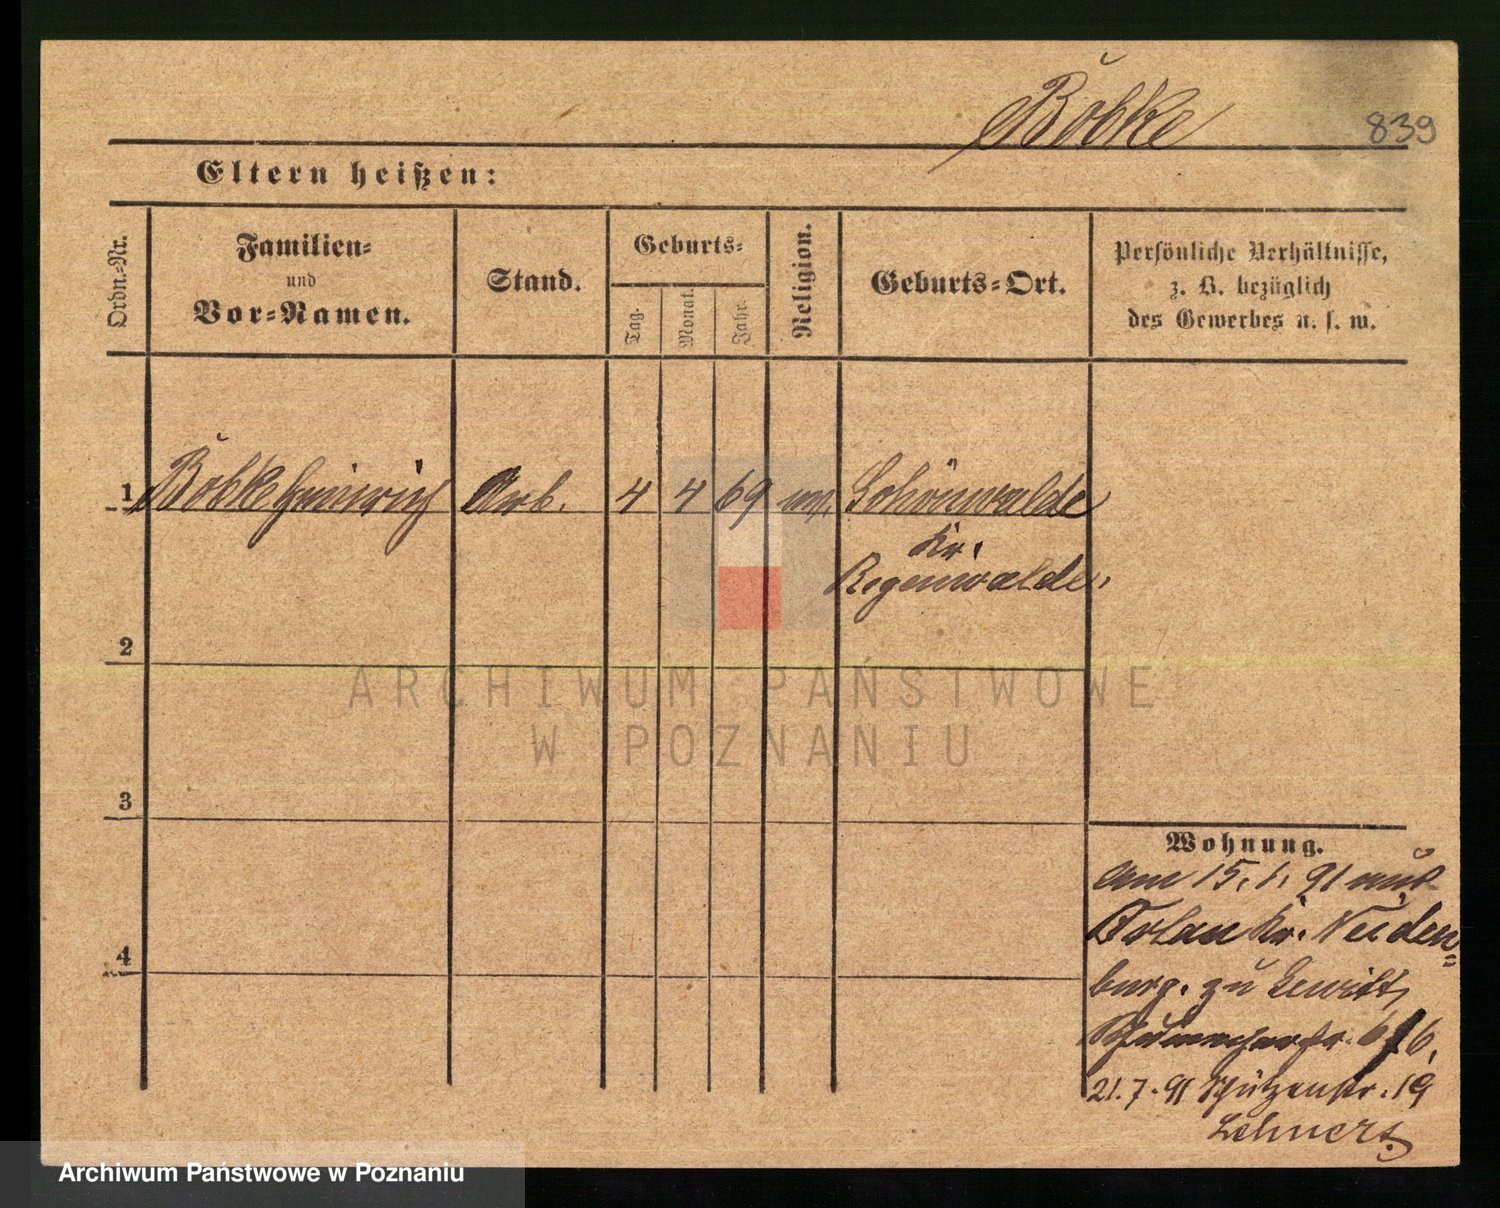 Böbke
839
Eltern heißen:
Ordn.-Nr.
Familien-
und
Vor-Namen.
Stand.
Geburts-
Tag.
Monat.
Jahr.
Religion.
Geburts-Ort.
Persönliche Verhältnisse,
z. B. bezüglich
des Gewerbes u. s. w.
1 Böbke Heinrich Arb. 4 4 69 Schönwalde
Kr.
Regenwalde.
2
3
4
Wohnung.
am 15. 1. 91 aus
Kr. Neiden-
burg. zu
6
21. 7. 91 Schützenstr. 19
Lehnert
ARCHIWUM PAŃSTWOWE
W POZNANIU
Archiwum Państwowe w Poznaniu